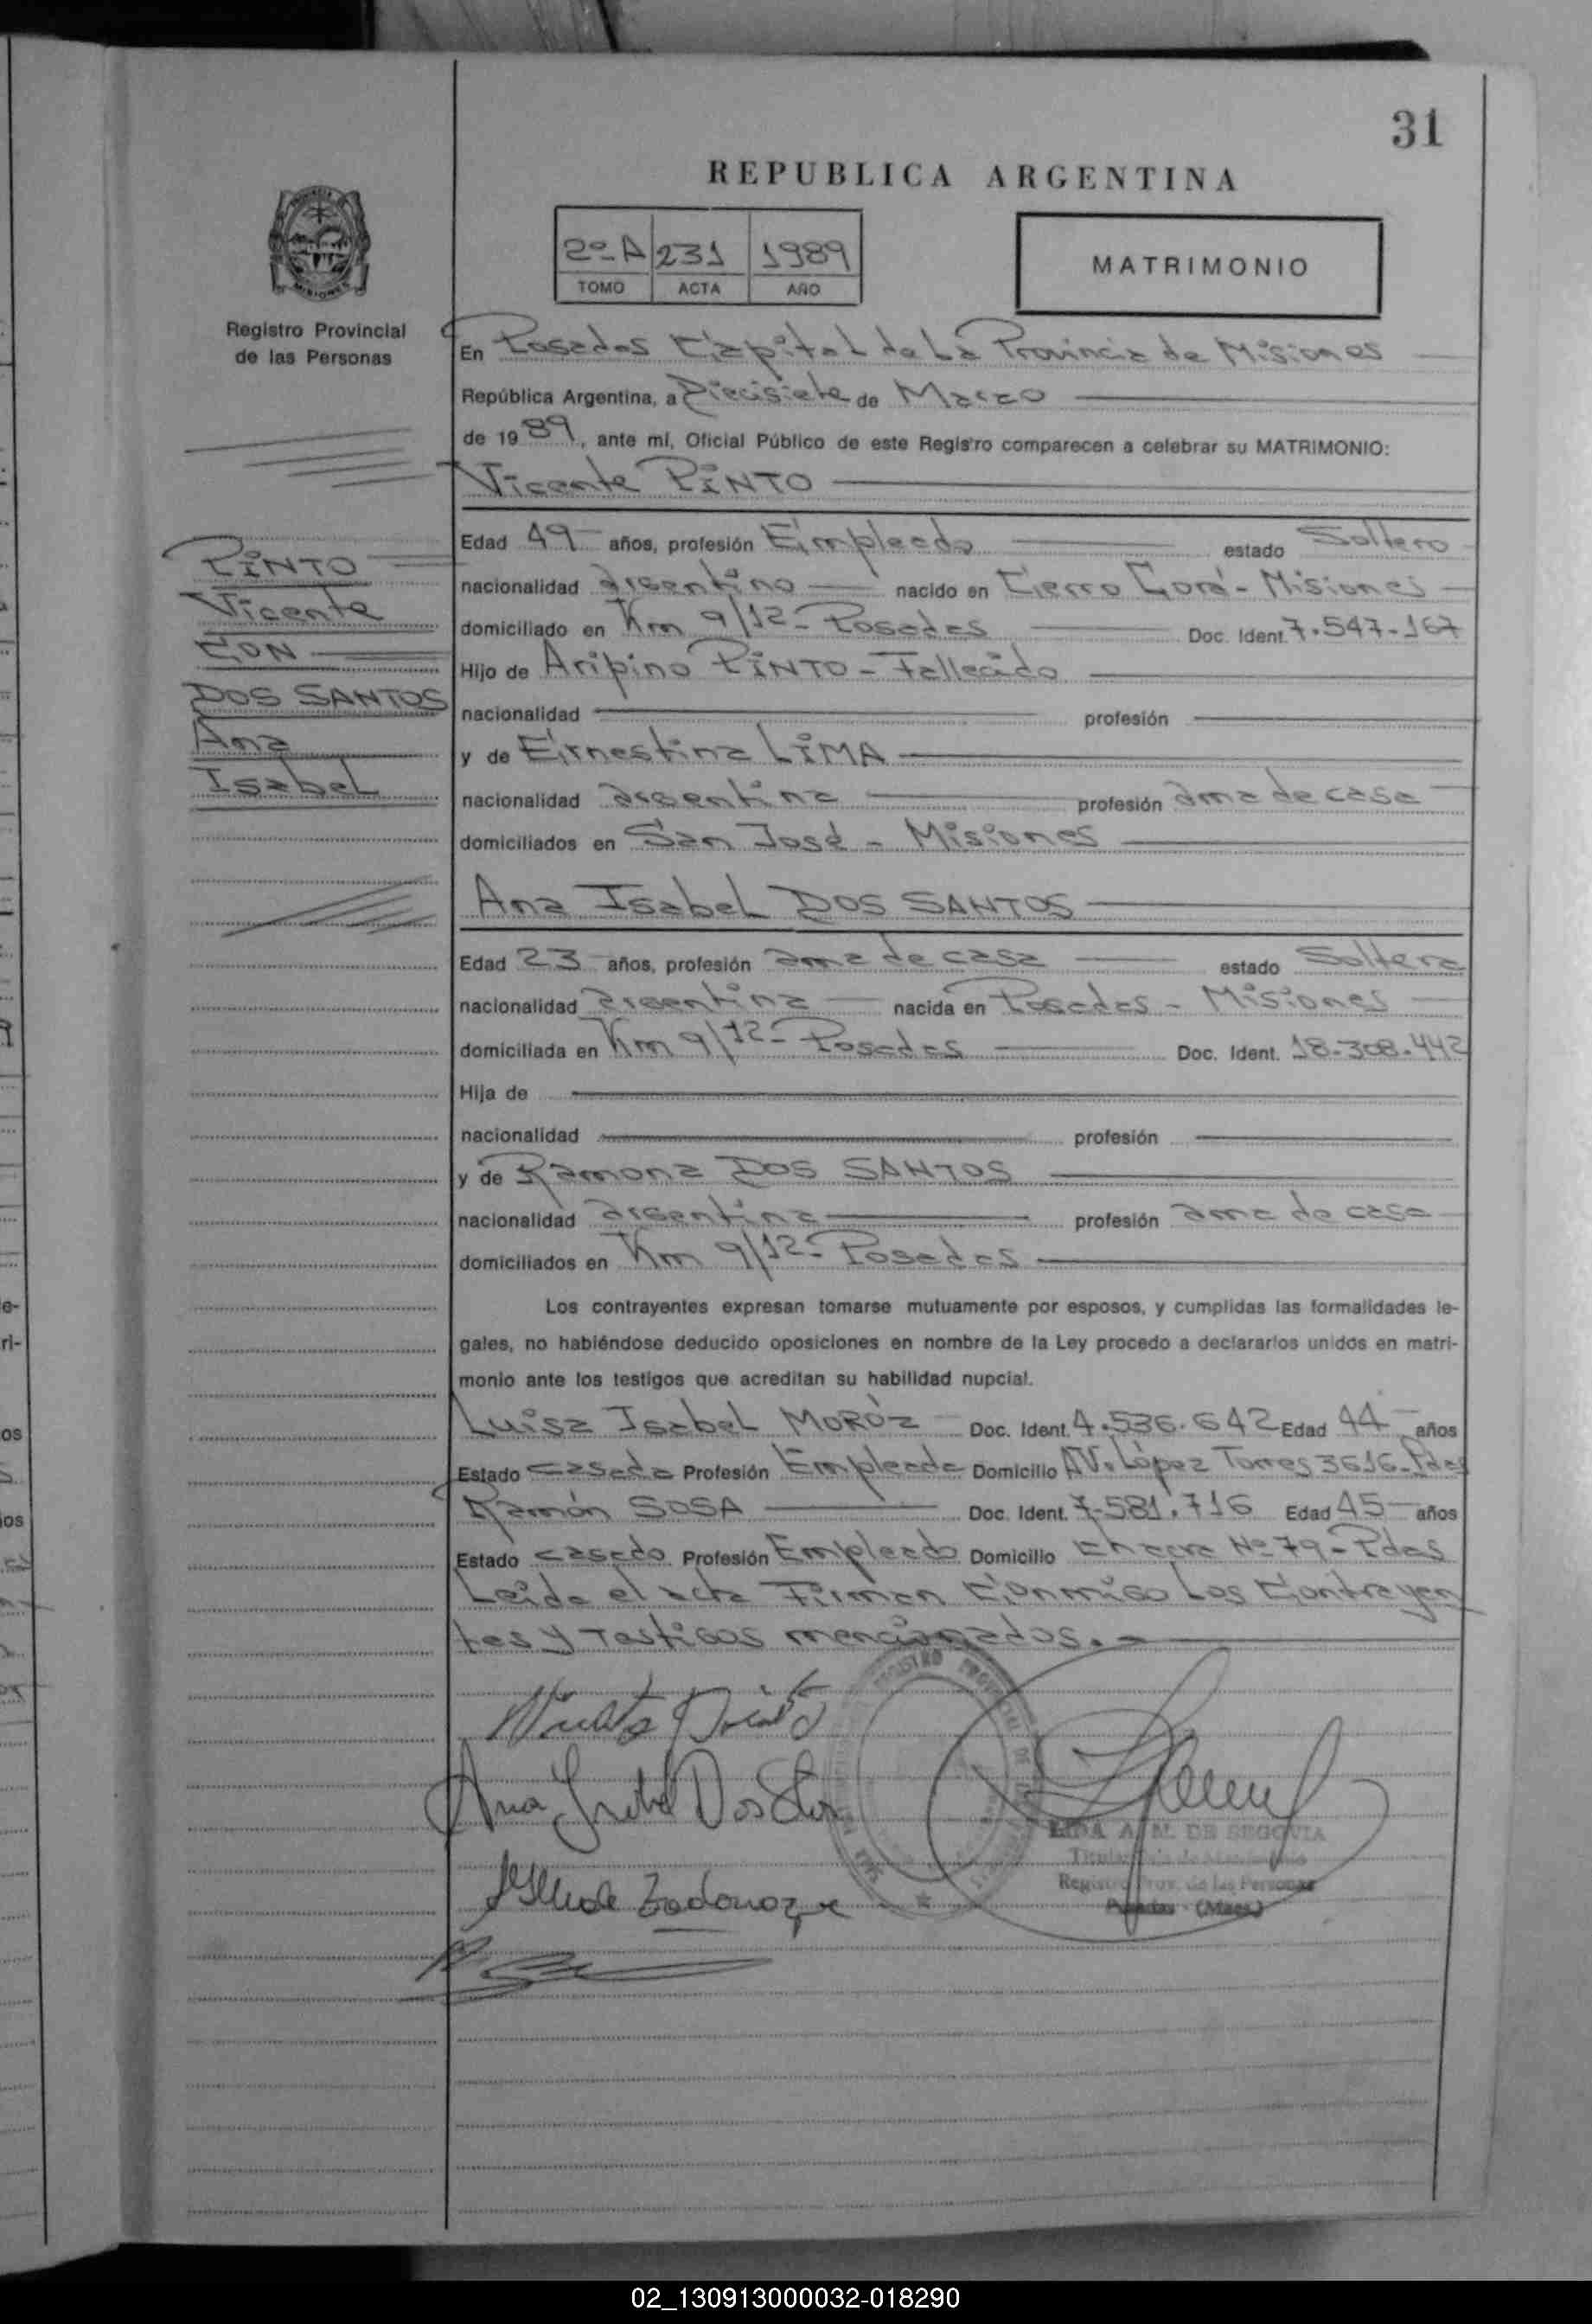 31
REPUBLICA ARGENTINA
2º A 231 1989
TOMO ACTA AÑO
MATRIMONIO
PROVINCIA DE MISIONES
Registro Provincial
de las Personas
En Posadas Capital de La Provincia de Misiones
República Argentina, a Diecisiete de Marzo
de 1989, ante mí, Oficial Público de este Registro comparecen a celebrar su MATRIMONIO:
Vicente PINTO
PINTO
Vicente
CON
DOS SANTOS
Ana
Isabel
Edad 49 años, profesión Empleado estado Soltero
nacionalidad argentino nacido en Cerro Corá - Misiones
domiciliado en Km 9/12 - Posadas Doc. Ident. 7.547.167
Hijo de Aripino PINTO - Fallecido
nacionalidad profesión
y de Ernestina LIMA
nacionalidad argentina profesión ama de casa
domiciliados en San José - Misiones
Ana Isabel DOS SANTOS
Edad 23 años, profesión ama de casa estado Soltera
nacionalidad argentina nacida en Posadas - Misiones
domiciliada en Km 9/12 - Posadas Doc. Ident. 18.308.442
Hija de
nacionalidad profesión
y de Ramona DOS SANTOS
nacionalidad argentina profesión ama de casa
domiciliados en Km 9/12 - Posadas
Los contrayentes expresan tomarse mutuamente por esposos, y cumplidas las formalidades le-
gales, no habiéndose deducido oposiciones en nombre de la Ley procedo a declararlos unidos en matri-
monio ante los testigos que acreditan su habilidad nupcial.
Luisa Isabel MORÓZ Doc. Ident. 4.536.642 Edad 44 años
Estado casada Profesión Empleada Domicilio AV. López Torres 3616 - Pdas
Ramón SOSA Doc. Ident. 7.581.716 Edad 45 años
Estado casado Profesión Empleado Domicilio Chacra Nº 79 - Pdas
Leída el acta Firman Conmigo Los Contrayen
tes y Testigos mencionados. -
Ana Isabel Dos Stos
A. M. DE SEGOVIA
Registro Prov. de las Personas
Posadas - (Mnes.)
02_130913000032-018290